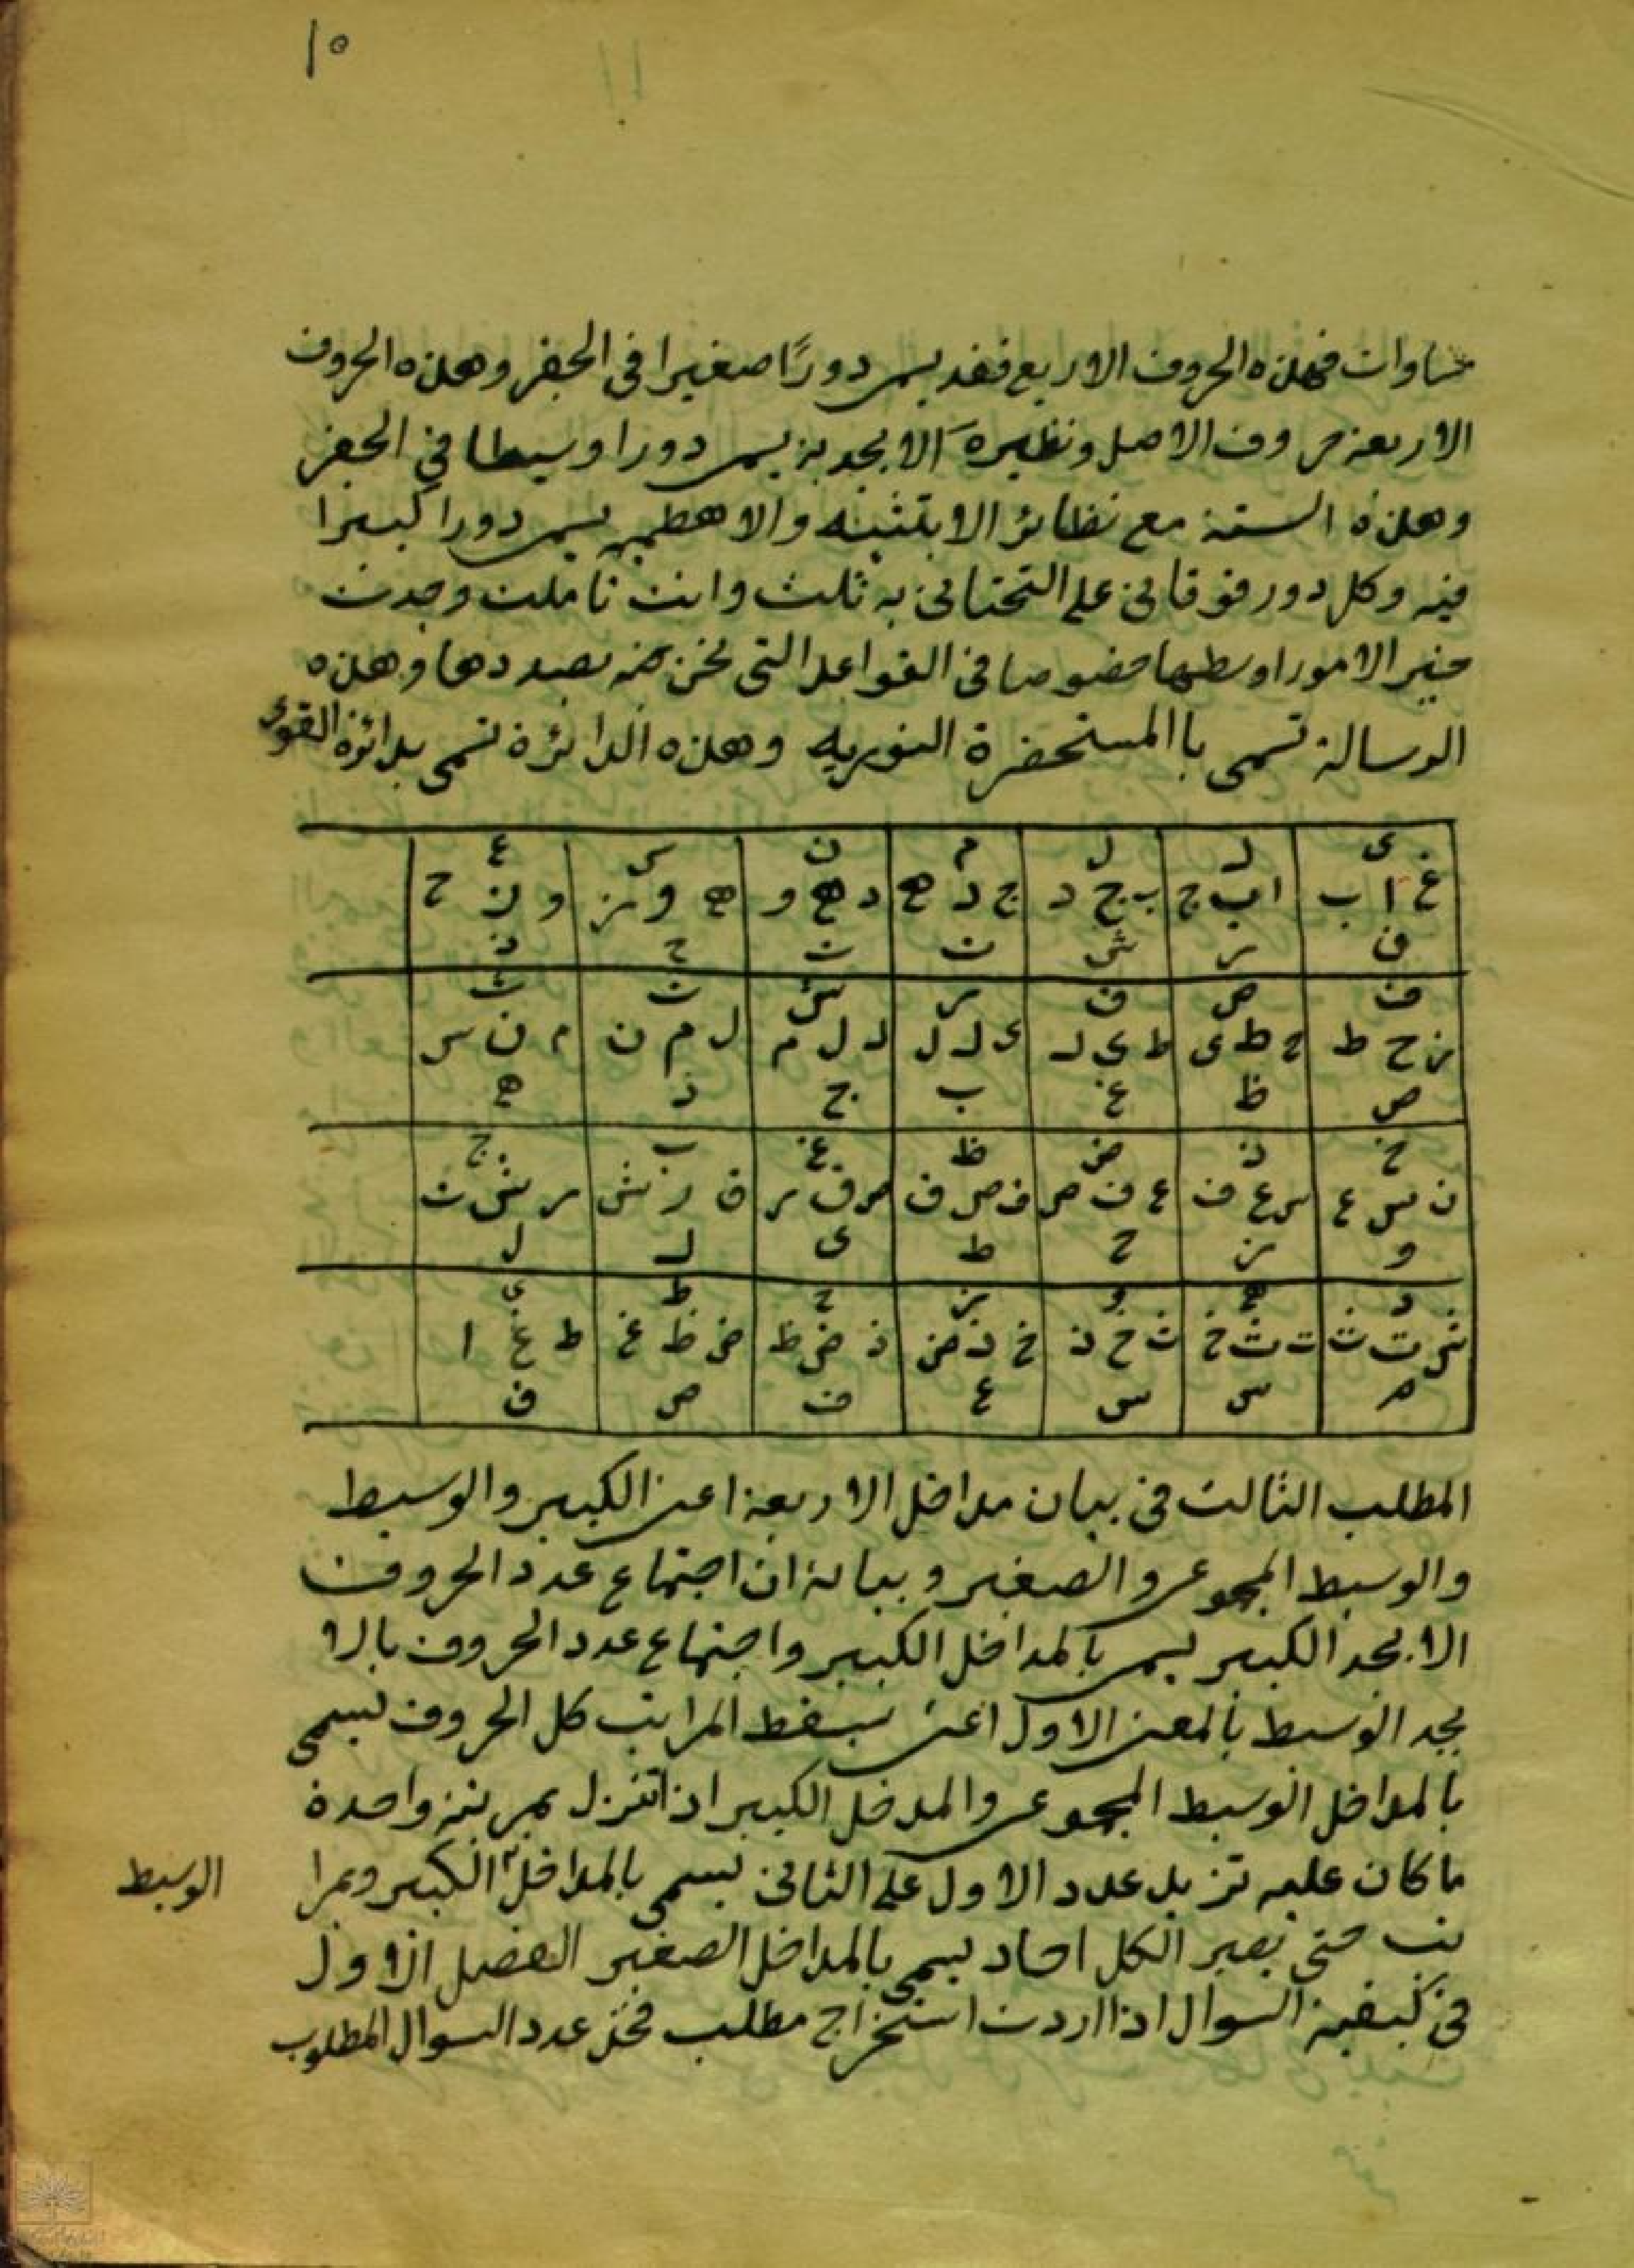 ١٥
مساوات فهذه الحروف الاربع فقد يسمى دورًا صغيرا فى الجفر وهذه الحروف
الاربعة حروف الاصل ونظيره الابجدية يسمى دورا وسيطا في الجفر
وهذه الستة مع نظائر الابتثيه والاهطميه يسمى دورا كبيرا
فيه وكل دور فوقانى على التحتانى به ثلث وانت تاملت وجدت
خير الامور اوسطها خصوصا فى القواعد التى نحن بصددها وهذه
الرسالة تسمى باالمستحضرة النوريه وهذه الدائرة تسمى بدائرة القوى
ى ك ل م ن س ع
غ ا ب ا ب ج ب ج د ج د ه د ه و ه و ز و ز ح
ق ر ش ت ث خ ذ
ف ص ق ر ش ت ث
ز ح ط ح ط ى ط ى ك ى ك ل ك ل م ل م ن م ن س
ض ظ غ ب ج د ه
خ ذ ض ظ غ ب ج
ن س ع س ع ف ع ف ص ف ص ق ص ق ر ق ر ش ر ش ت
و ز ح ط ى ك ل
د ه و ز ح ط ى
ش ت ث ت ث خ ث خ ذ خ ذ ض ذ ض ظ ض ظ غ ظ غ ا
م س س ع ف ص ق
المطلب الثالث فى بيان مداخل الاربعة اعنى الكبير والوسيط
والوسيط المجموعى والصغير وبيانه ان اجتماع عدد الحروف
الابجد الكبير يسمى بالمداخل الكبير واجتماع عدد الحروف بالا
بجد الوسيط بالمعنى الاول اعنى بسقط المراتب كل الحروف يسمى
بالمداخل الوسيط المجموعى والمدخل الكبير اذا تنزل بمرتبة واحدة
ما كان عليه تزيد عدد الاول على الثانى يسمى بالمداخل الكبير وبمرا
الوسيط
تب حتى يصير الكل احاد يسمى بالمداخل الصغير الفصل الاول
فى كيفية السوال اذا اردت استخراج مطلب فخذ عدد السوال المطلوب